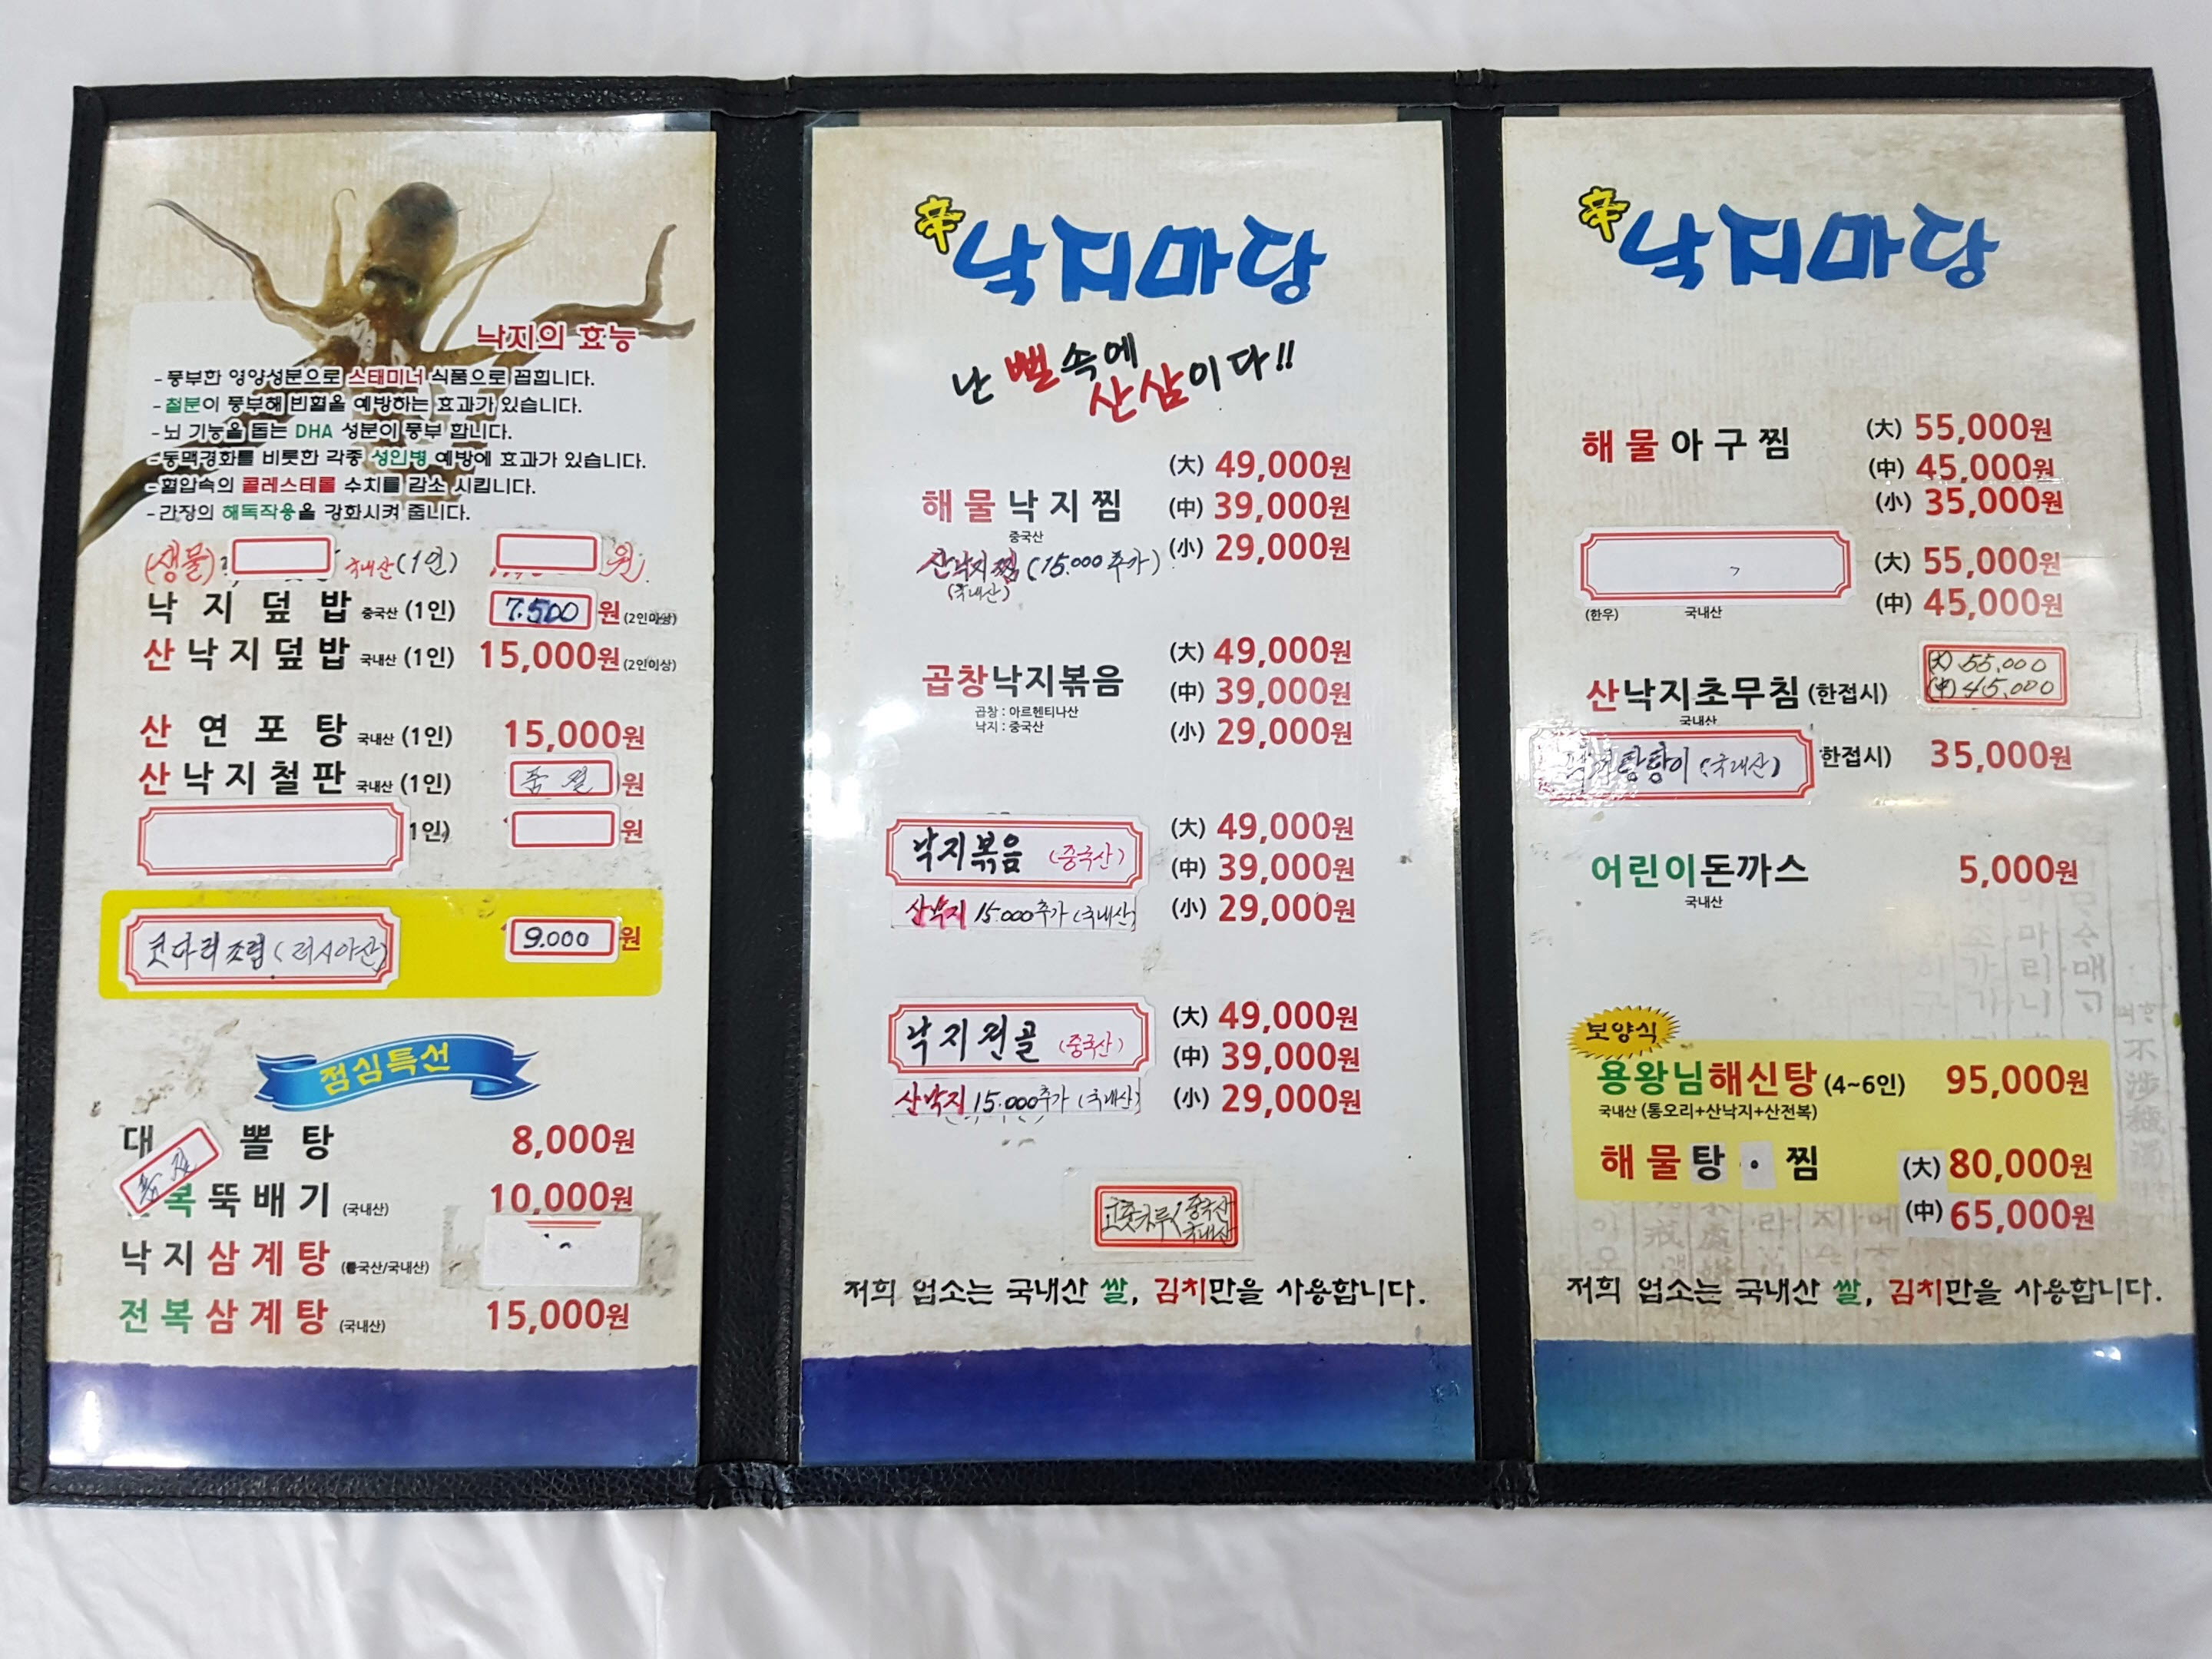 낙지의 효능
- 풍부한 영양성분으로 스태미너 식품으로 꼽힙니다.
- 철분이 풍부해 빈혈을 예방하는 효과가 있습니다.
- 뇌 기능을 돕는 DHA 성분이 풍부 합니다.
- 동맥경화를 비롯한 각종 성인병 예방에 효과가 있습니다.
- 혈압속의 콜레스테롤 수치를 감소 시킵니다.
- 간장의 해독작용을 강화시켜 줍니다.
(생물) 국내산 (1인) 원
낙지덮밥 중국산 (1인) 7.500 원 (2인이상)
산낙지덮밥 국내산 (1인) 15,000원 (2인이상)
산연포탕 국내산 (1인) 15,000원
산낙지철판 국내산 (1인) 품절 원
1인) 원
코다리조림 (러시아산) 9.000 원
점심특선
대 뽈탕 8,000원
품절
복뚝배기 (국내산) 10,000원
낙지삼계탕 (중국산/국내산)
전복삼계탕 (국내산) 15,000원
辛 낙지마당
난 뻘속에 산삼이다!!
해물낙지찜 (大) 49,000원
중국산 (中) 39,000원
산낙지찜 (15.000 추가) (小) 29,000원
(국내산)
곱창낙지볶음 (大) 49,000원
곱창 : 아르헨티나산 (中) 39,000원
낙지 : 중국산 (小) 29,000원
낙지볶음 (중국산) (大) 49,000원
(中) 39,000원
산낙지 15.000추가 (국내산) (小) 29,000원
낙지전골 (중국산) (大) 49,000원
(中) 39,000원
산낙지 15.000추가 (국내산) (小) 29,000원
고춧가루 (중국산
국내산
저희 업소는 국내산 쌀, 김치만을 사용합니다.
辛 낙지마당
해물아구찜 (大) 55,000원
(中) 45,000원
(小) 35,000원
(大) 55,000원
(한우) 국내산 (中) 45,000원
산낙지초무침 (한접시) (大) 55.000
국내산 (中) 45.000
탕탕이 (국내산) 한접시) 35,000원
어린이돈까스 5,000원
국내산
보양식
용왕님해신탕 (4~6인) 95,000원
국내산 (통오리+산낙지+산전복)
해물탕 · 찜 (大) 80,000원
(中) 65,000원
저희 업소는 국내산 쌀, 김치만을 사용합니다.